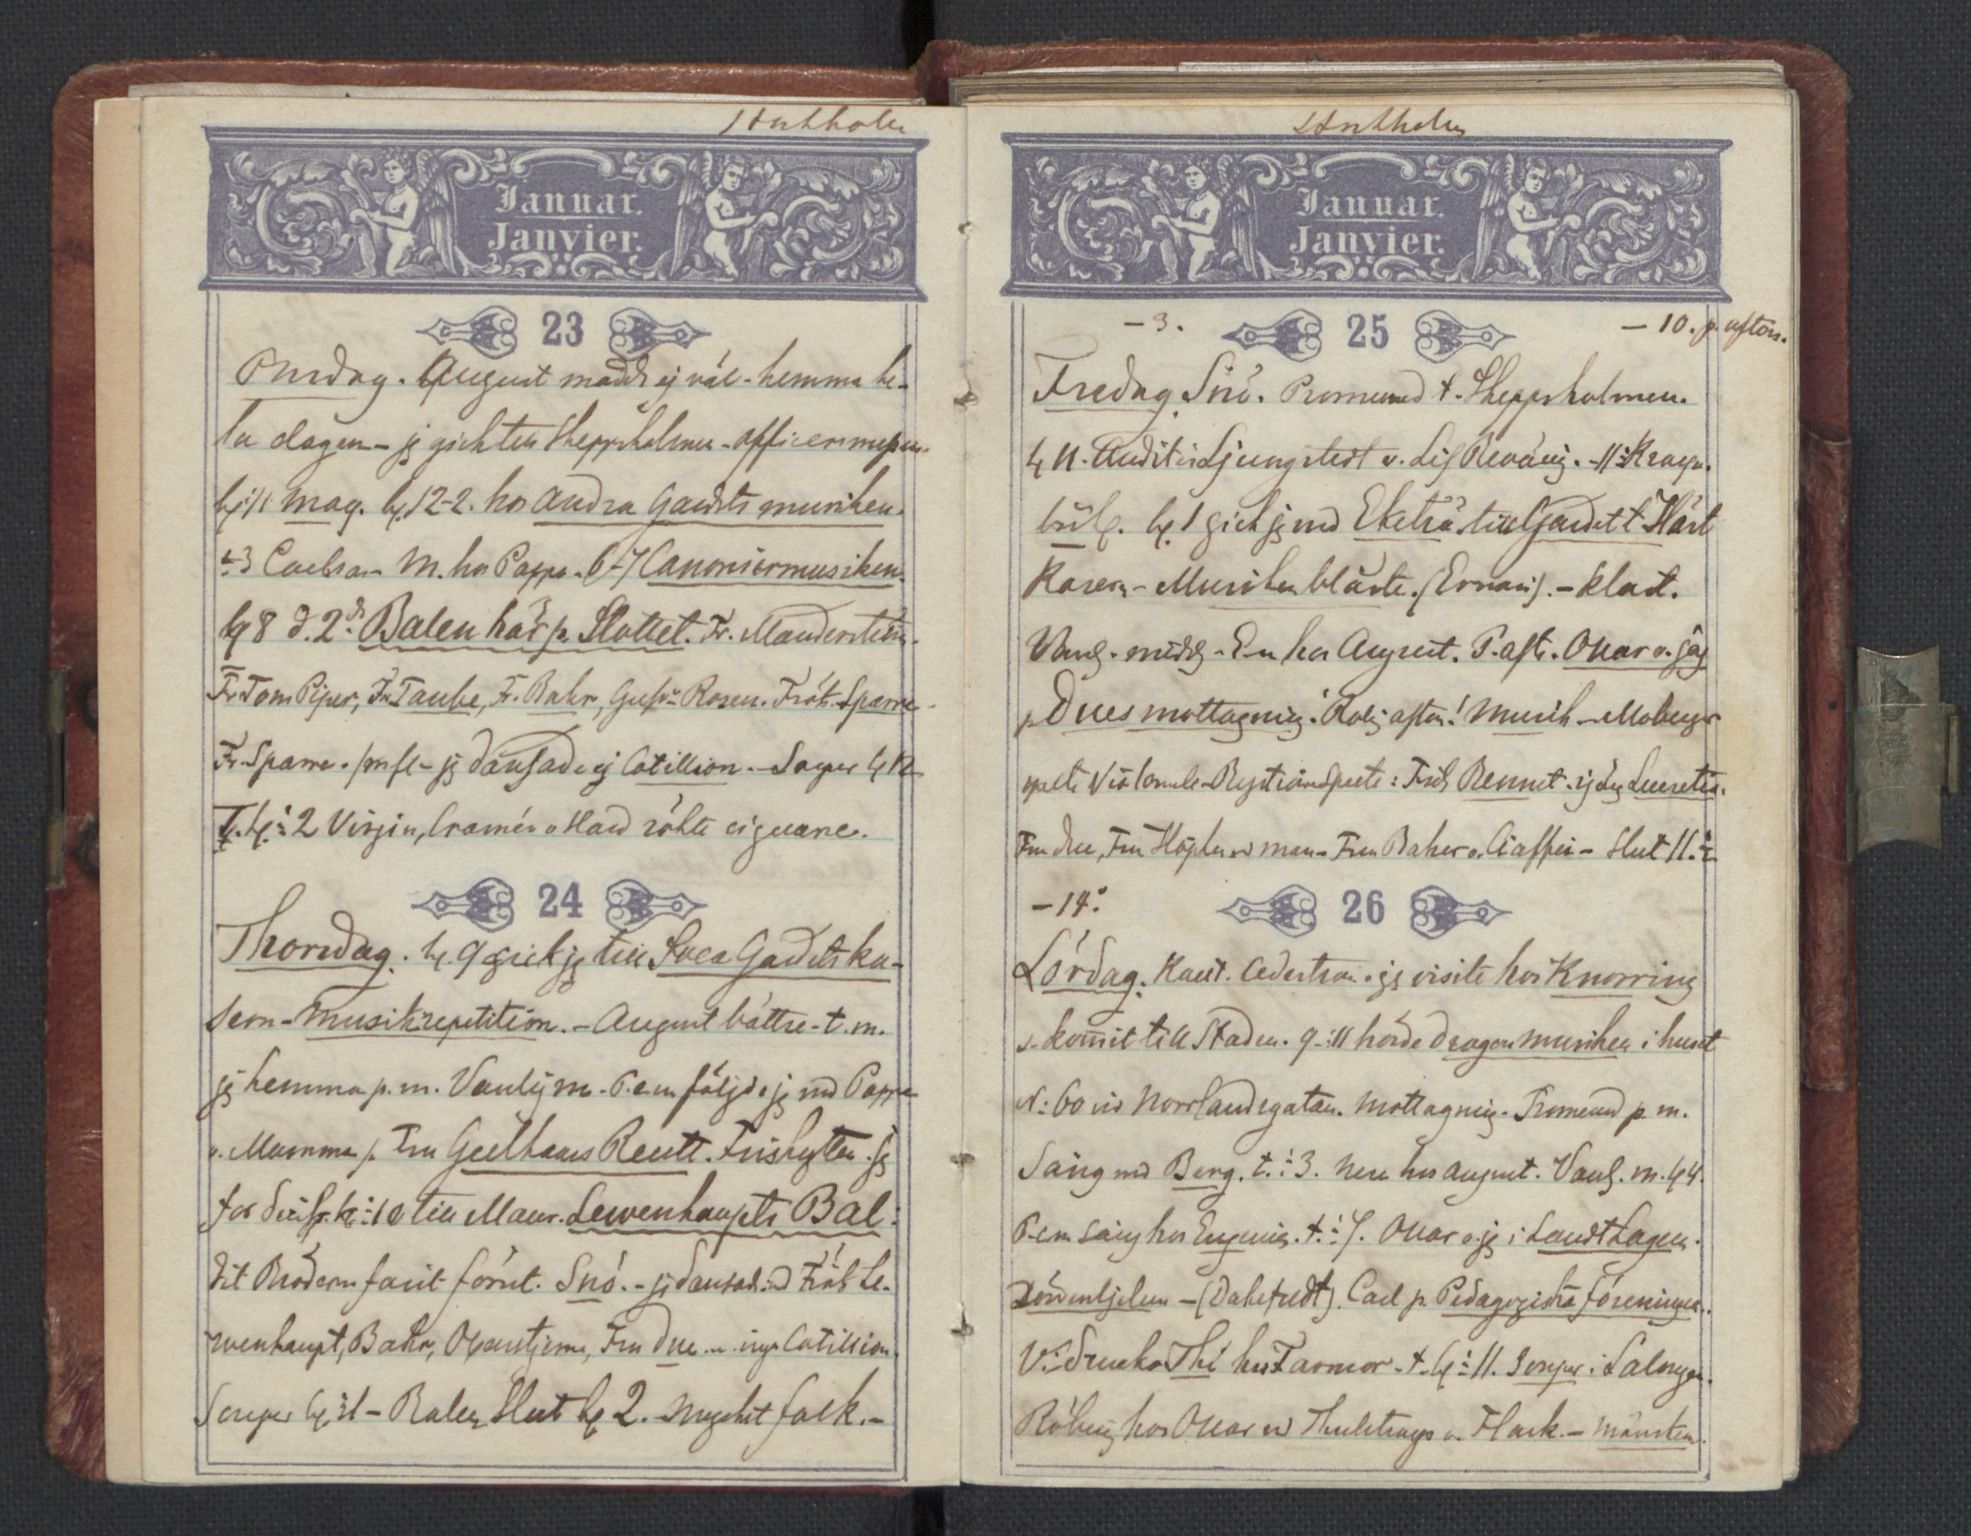 Stockholm
Januar.
Janvier.
23
Onsdag. August mådde ej väl - hemma he-
la dagen - jg gick till Skeppsholmen - officersmessen.
kl: 11 mag. kl. 12-2. hos Andra Gardets musiken.
M. hos Pappa. 6-7 Canoniermusiken.
kl 8 d. 2dr Balen här på Slottet. Fr. Manderström.
Fr. Tom Piper, Fr. Taube, Fr. Bahr, Rosen. Frök. Sparre
Fr. Sparre. m fl - jg dansade ej Cotillion. - Souper kl 12
T. kl: 2 Virgin, Cramér o Hård rökte cigarre.
24
Thorsdag. kl 9 gick jg till Svea Gardets ka-
sern - Musikrepetition. - August bättre - t. m.
jg hemma p. m. Vanlig m. - P. e m följde jg md Pappa
o. Mamma p. Fru Geelhaars Reutt. Frishyttan. jg
for kl: 10 till Maur. Lewenhaupts Bal:
dit Bröderna farit förut. Snö. - jg dansade md Frök Le-
wenhaupt, Bahr, Oxenstjerna, Fru Due .. inga Cotillion.
Souper kl: 1 - Balen Slut kl 2. - Mycket folk. -
Stockholm
Januar.
Janvier.
- 3.
25
- 10. p. afton.
Fredag. Snö. Promenad t. Skeppsholmen.
kl 11. Auditör Ljungstedt v. Lif Beväring. - 11:
kl. 1 gick jg md Eketrä till Gardet t. Häst
Kasern - Musiken blåste. (Ernani). - klart.
Vanl. midd - E m hos August. P. aft. Oscar o. jag
p Dues mottagning. Rolig afton! Musik - Moberger
spelte Violoncelle - : Frök Bennet. sjöng Lucretia.
Fru Due, Fru Höpken md man - Fru Baker o. Ciaffei - Slut 11. ½
- 14°.
26
Lördag. Kavt. Cederström o jg visite hos Knorring
s. kommit till Staden. 9 - 11 hörde dragon musiken i huset
N: 60 vid Norrlandsgatan. Mottagning. Promenad p. m.
Sång md Berg. t. : 3. Nere hos August. Vanl. m. kl 4.
P. e m sång hos Eugenie. t. : 7. Oscar o. jg i Landt Lagen.
Dörrentjelen - (Dahlstedt). Carl p. Pedagogiska föreningen.
Vi drucko Thé hos Farmor. t. kl: 11. Souper i Salongen.
Rökning hos Oscar md Thulstrups o. Flach. - Månsken.